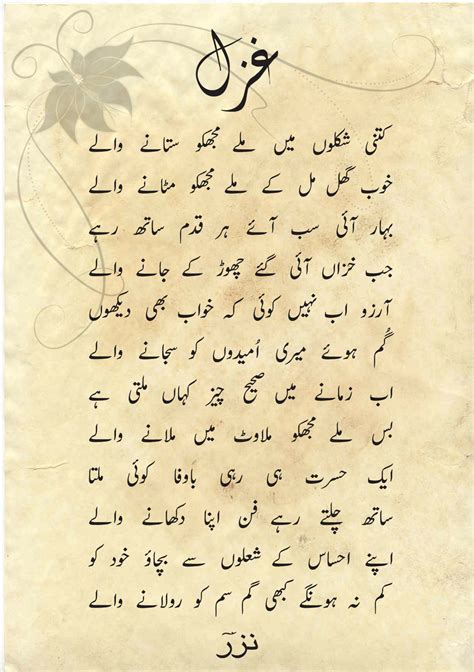 غزل
کتنی شکلوں میں ملے مجھکو ستانے والے
خوب گھل مل کے ملے مجھکو مٹانے والے
بہار آئی سب آئے ہر قدم ساتھ رہے
جب خزاں آئی گئے چھوڑ کے جانے والے
آرزو اب نہیں کوئی کہ خواب بھی دیکھوں
گُم ہوئے میری اُمیدوں کو سجانے والے
اب زمانے میں صحیح چیز کہاں ملتی ہے
بس ملے مجھکو ملاوٹ میں ملانے والے
ایک حسرت ہی رہی باوفا کوئی ملتا
ساتھ چلتے رہے فن اپنا دکھانے والے
اپنے احساس کے شعلوں سے بچاؤ خود کو
کم نہ ہونگے کبھی گم سم کو رولانے والے
نزر